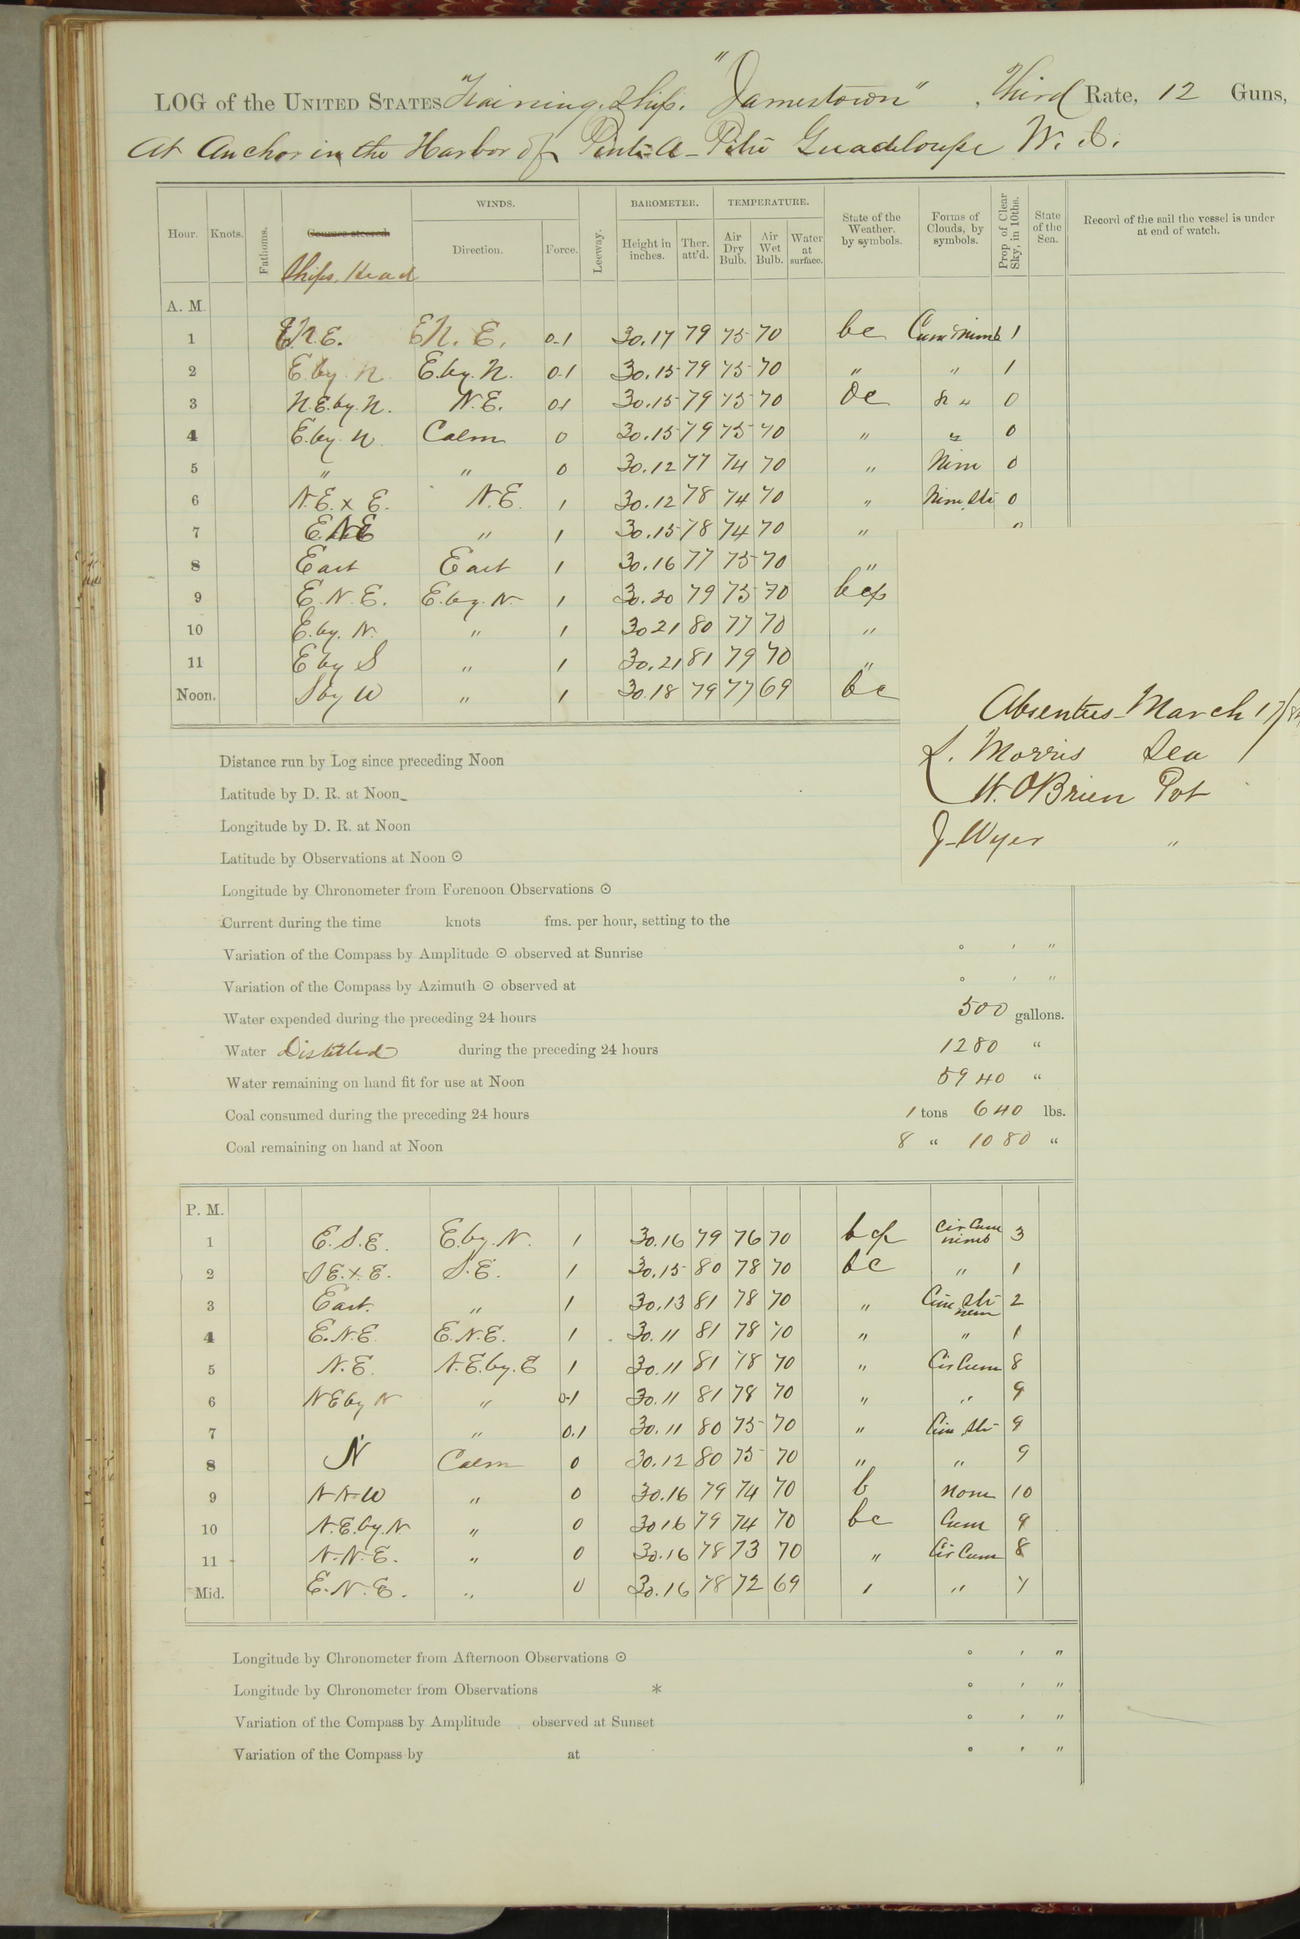 LOG of the UNITED STATES Training Ship. "Jamestown", Third Rate, 12 Guns,
At Anchor in the Harbor of Point-A-Pitre Guadeloupe W. I.
Hour. Knots. Fathoms. Courses steered. Ships Head WINDS. Direction. Force. Leeway. BAROMETER. Height in inches. Ther. att'd. TEMPERATURE. Air Dry Bulb. Air Wet Bulb. Water at surface. State of the Weather. by symbols. Forms of Clouds, by symbols. Prop of Clear Sky, in 10ths. State of the Sea. Record of the sail the vessel is under at end of watch.
A. M.
1 E.N.E. E.N.E. 0.1 30.17 79 75 70 bc Cum Nimb 1
2 E. by N E. by. N. 0.1 30.15 79 75 70 " " 1
3 N.E. by. N. N.E. 0.1 30.15 79 75 70 Oc " 0
4 E. by N. Calm 0 30.15 79 75 70 " " 0
5 " " 0 30.12 77 74 70 " Nim 0
6 N.E. x E. N.E. 1 30.12 78 74 70 " Nim Str 0
7 E.N.E " 1 30.15 78 74 70 " "
8 East East 1 30.16 77 75 70 "
9 E.N.E. E. by. N. 1 30.20 79 75 70 bcp
10 E. by. N. " 1 30 21 80 77 70 "
11 E by S " 1 30.21 81 79 70 "
Noon. S by W " 1 30.18 79 77 69 bc
Absentees March 17/
L. Morris Sea
W. O'Brien Pot
J. Wyer "
Distance run by Log since preceding Noon
Latitude by D. R. at Noon
Longitude by D. R. at Noon
Latitude by Observations at Noon ⊙
Longitude by Chronometer from Forenoon Observations ⊙
Current during the time knots fms. per hour, setting to the
Variation of the Compass by Amplitude ⊙ observed at Sunrise ° ′ ″
Variation of the Compass by Azimuth ⊙ observed at ° ′ ″
Water expended during the preceding 24 hours 500 gallons.
Water Distilled during the preceding 24 hours 1280 "
Water remaining on hand fit for use at Noon 5940 "
Coal consumed during the preceding 24 hours 1 tons 640 lbs.
Coal remaining on hand at Noon 8 " 1080 "
P. M.
1 E.S.E. E. by. N. 1 30.16 79 76 70 bcp Cir Cum nimb 3
2 S E. x. E. S.E. 1 30.15 80 78 70 bc " 1
3 East. " 1 30.13 81 78 70 " Cum Str nim 2
4 E.N.E E.N.E. 1 30.11 81 78 70 " " 1
5 N.E. N.E. by. E 1 30.11 81 78 70 " Cir Cum 8
6 N E by N " 0.1 30.11 81 78 70 " " 9
7 " " 0.1 30.11 80 75 70 " Cum Str 9
8 N Calm 0 30.12 80 75 70 " " 9
9 N N W " 0 30.16 79 74 70 b none 10
10 N.E. by. N " 0 30 16 79 74 70 bc Cum 9
11 N.N.E. " 0 30.16 78 73 70 " Cir Cum 8
Mid. E.N.E. " 0 30.16 78 72 69 " " 7
Longitude by Chronometer from Afternoon Observations ⊙ ° ′ ″
Longitude by Chronometer from Observations * ° ′ ″
Variation of the Compass by Amplitude observed at Sunset ° ′ ″
Variation of the Compass by at ° ′ ″